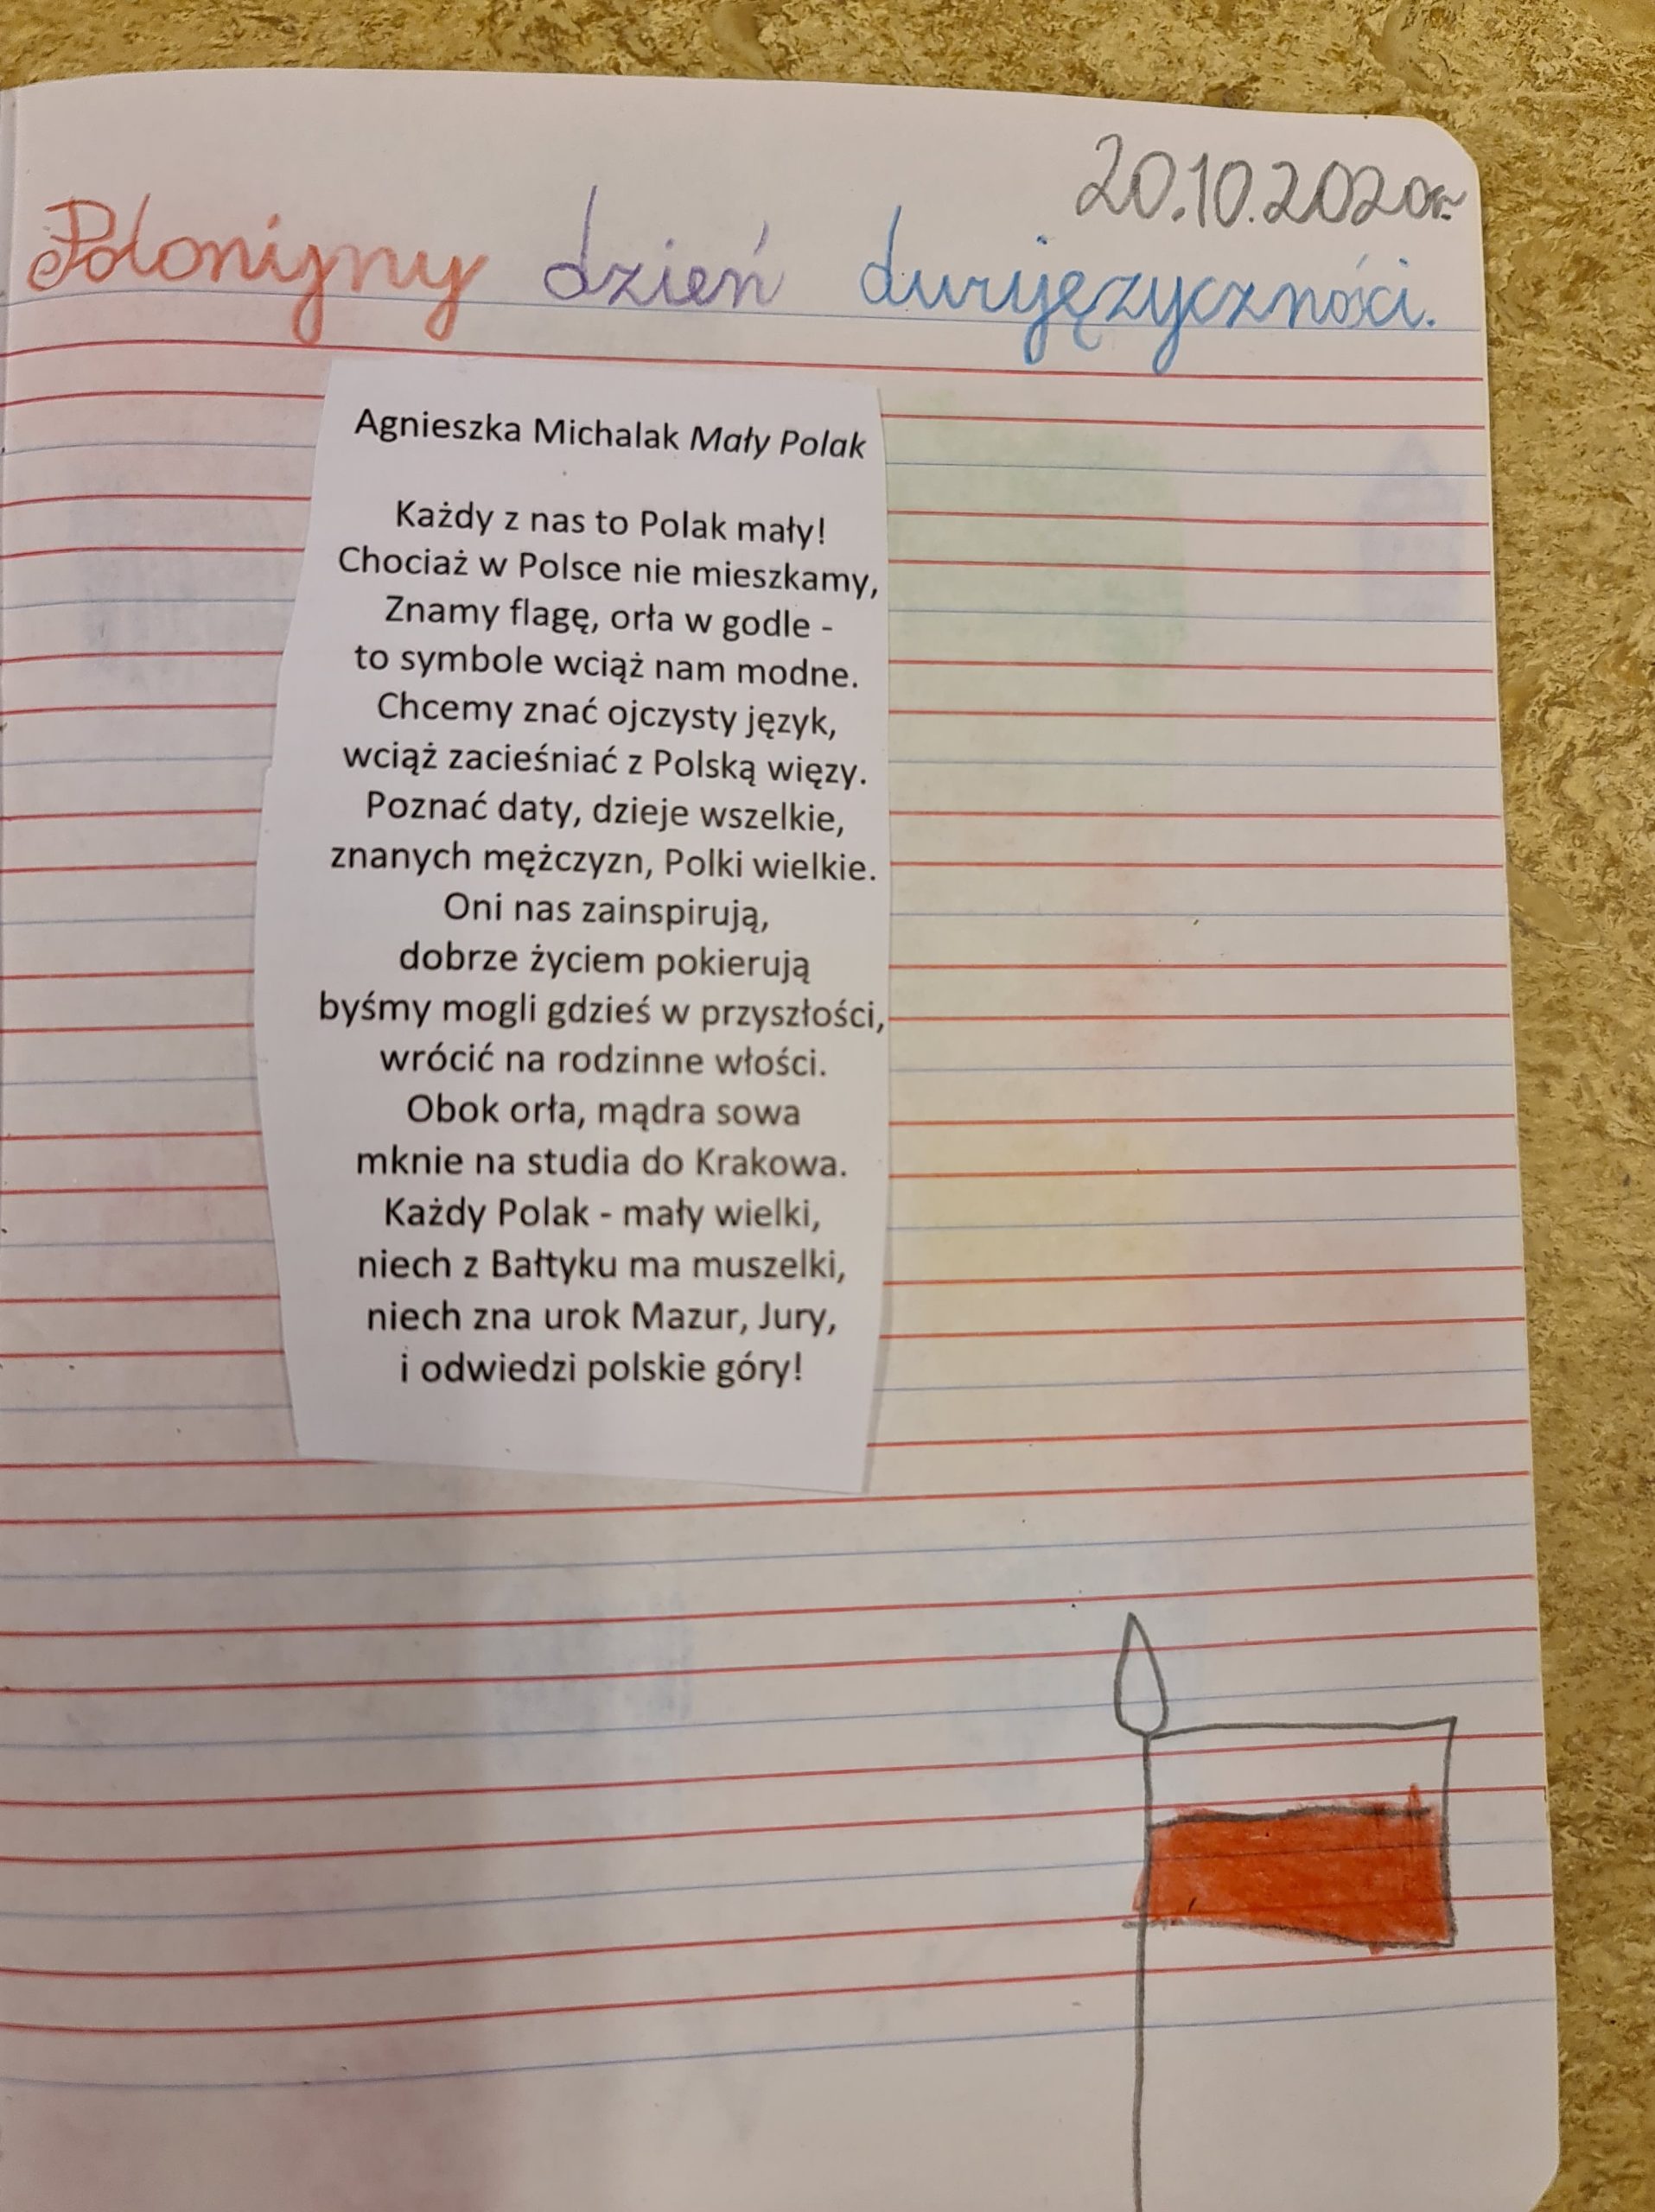 20.10.2020r.
Polonijny dzień dwujęzyczności.
Agnieszka Michalak Mały Polak
Każdy z nas to Polak mały!
Chociaż w Polsce nie mieszkamy,
Znamy flagę, orła w godle -
to symbole wciąż nam modne.
Chcemy znać ojczysty język,
wciąż zacieśniać z Polską więzy.
Poznać daty, dzieje wszelkie,
znanych mężczyzn, Polki wielkie.
Oni nas zainspirują,
dobrze życiem pokierują
byśmy mogli gdzieś w przyszłości,
wrócić na rodzinne włości.
Obok orła, mądra sowa
mknie na studia do Krakowa.
Każdy Polak - mały wielki,
niech z Bałtyku ma muszelki,
niech zna urok Mazur, Jury,
i odwiedzi polskie góry!